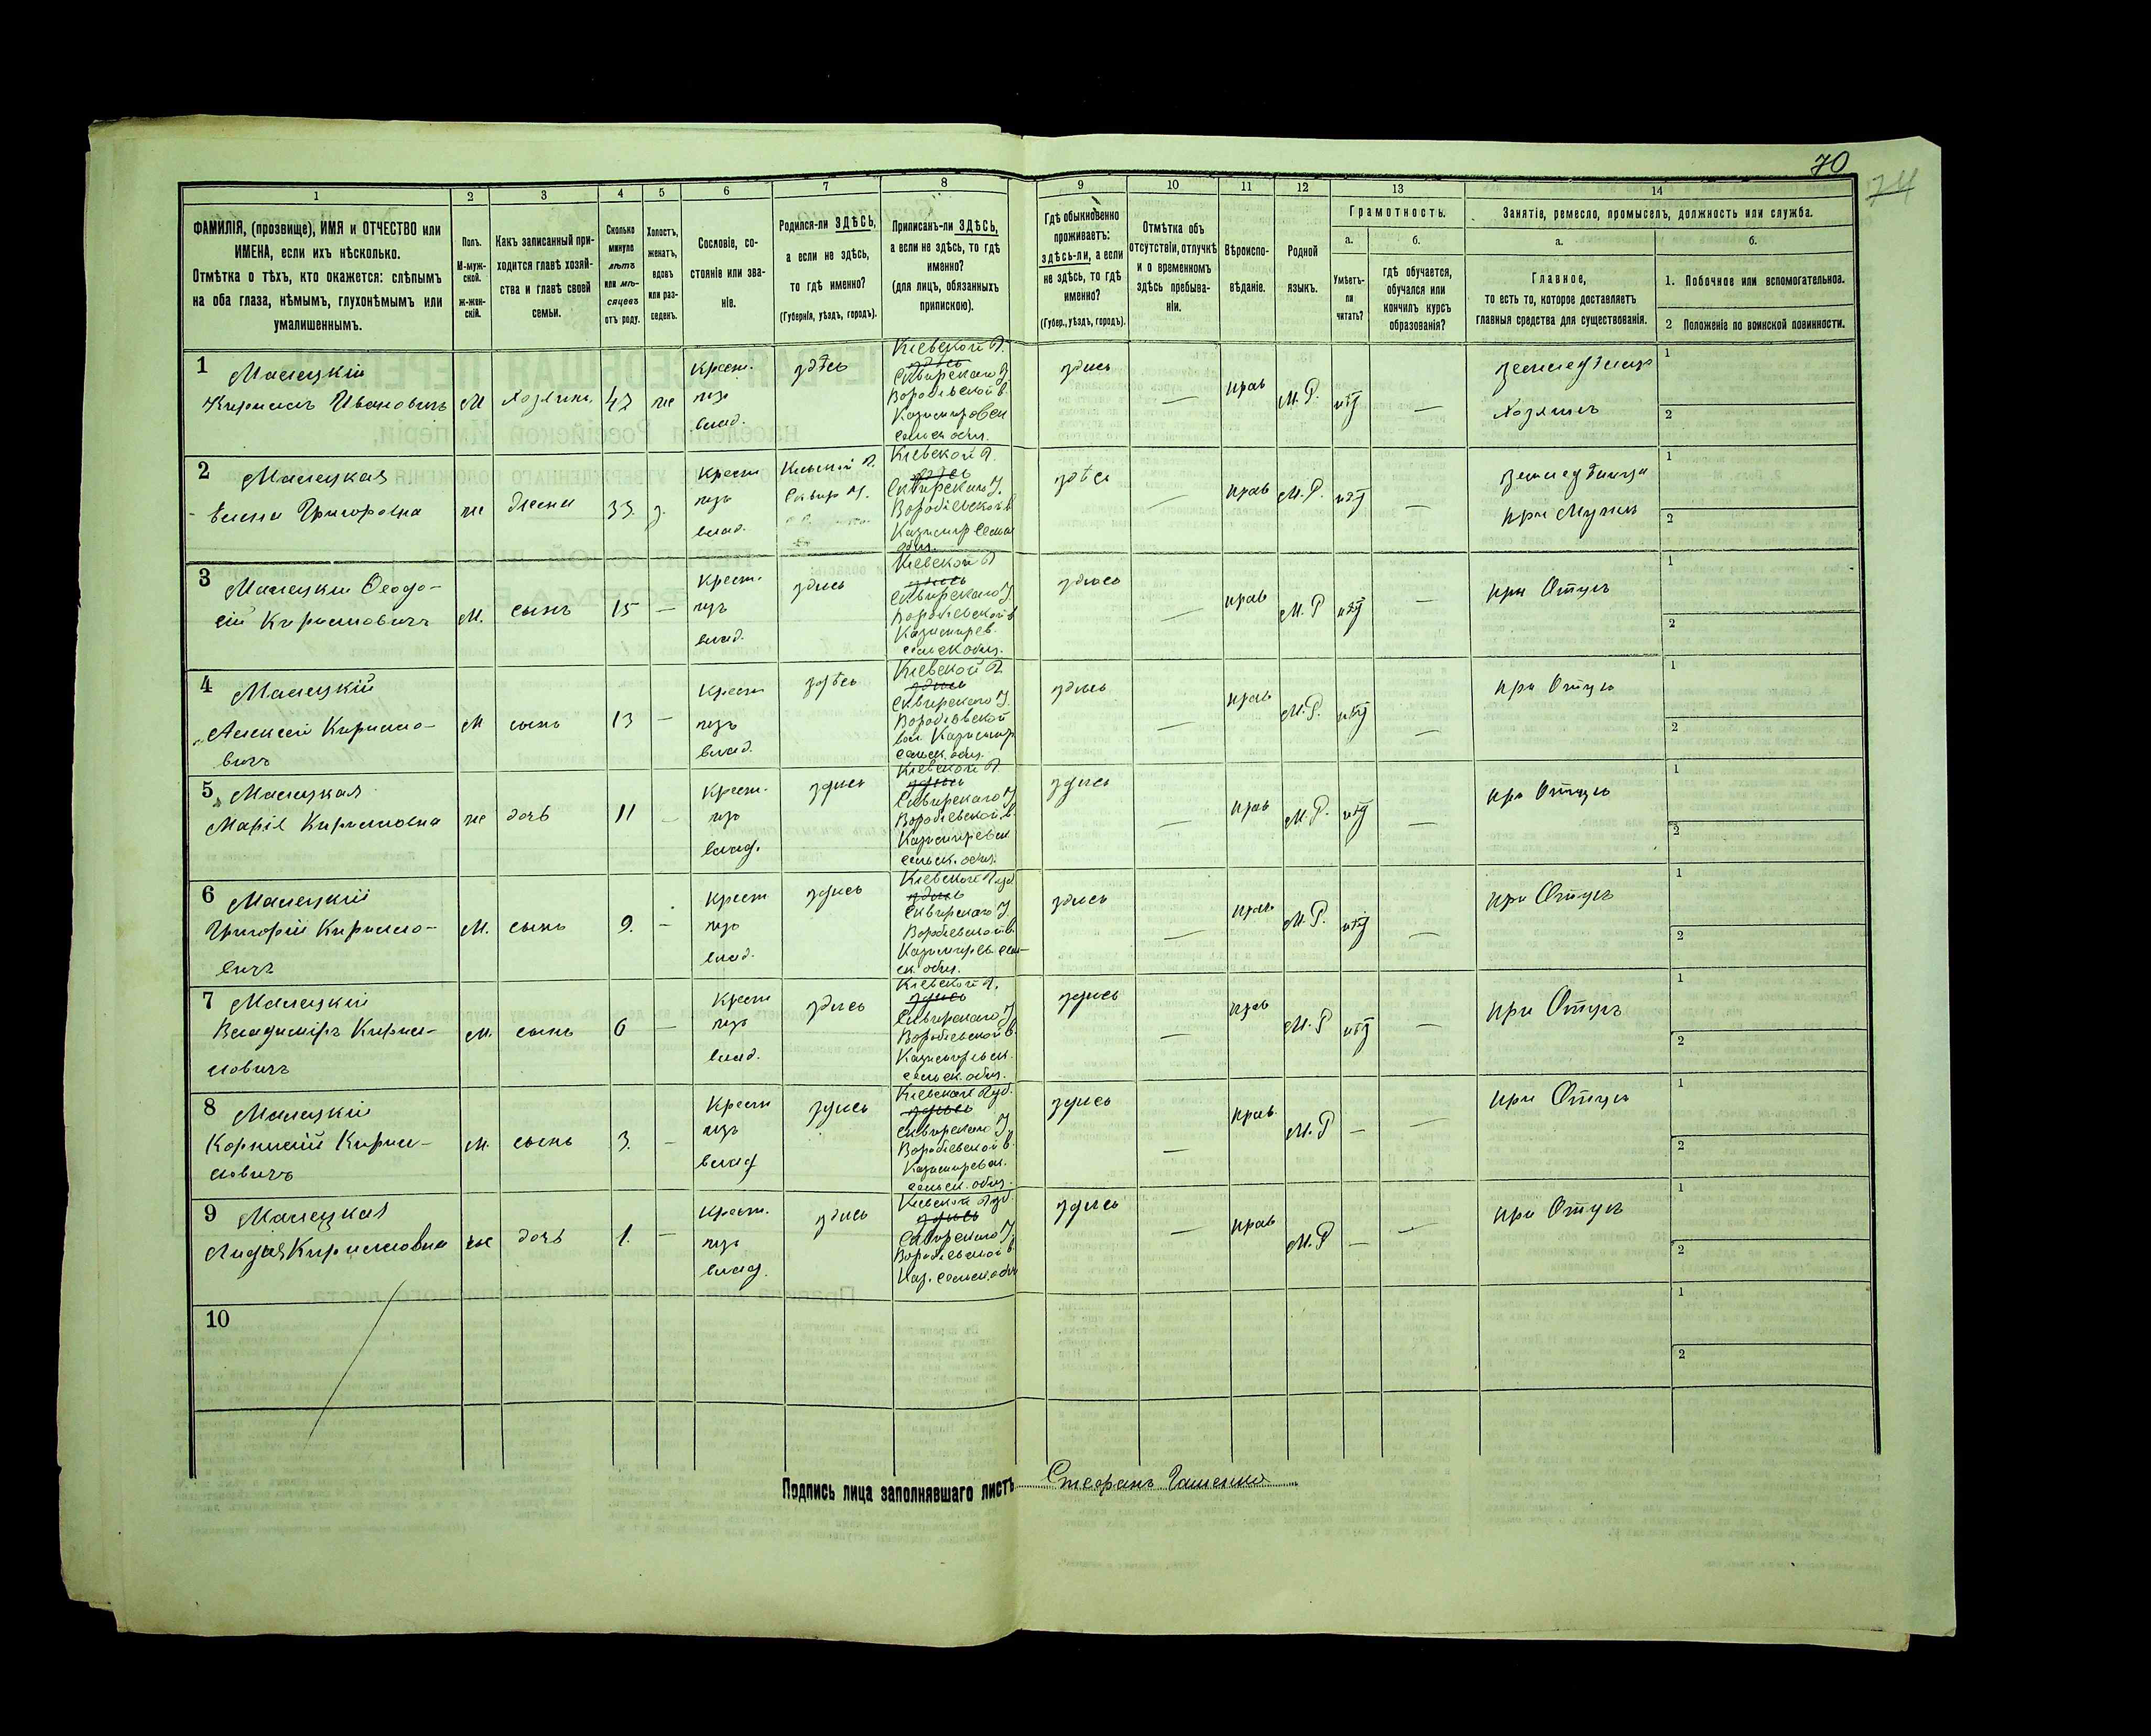 70
74
1 2 3 4 5 6 7 8 9 10 11 12 13 14
ФАМИЛІЯ, (прозвище), ИМЯ и ОТЧЕСТВО или
ИМЕНА, если ихъ нѣсколько.
Отмѣтка о тѣхъ, кто окажется: слѣпымъ
на оба глаза, нѣмымъ, глухонѣмымъ или
умалишеннымъ.
Полъ.
М-муж-
ской.
ж-жен-
скій.
Какъ записанный при-
ходится главѣ хозяй-
ства и главѣ своей
семьи.
Сколько
минуло
лѣтъ
или мѣ-
сяцевъ
отъ роду.
Холостъ,
женатъ,
вдовъ
или раз-
веденъ.
Сословіе, со-
стояніе или зва-
ніе.
Родился-ли ЗДѢСЬ,
а если не здѣсь,
то гдѣ именно?
(Губернія, уѣздъ, городъ).
Приписанъ-ли ЗДѢСЬ,
а если не здѣсь, то гдѣ
именно?
(для лицъ, обязанныхъ
припискою).
Гдѣ обыкновенно
проживаетъ:
здѣсь-ли, а если
не здѣсь, то гдѣ
именно?
(Губер., уѣздъ, городъ).
Отмѣтка объ
отсутствіи, отлучкѣ
и о временномъ
здѣсь пребыва-
ніи.
Вѣроиспо-
вѣданіе.
Родной
языкъ.
Грамотность.
а.
Умѣетъ-
ли
читать?
б.
гдѣ обучается,
обучался или
кончилъ курсъ
образованія?
Занятіе, ремесло, промыселъ, должность или служба.
а.
Главное,
то есть то, которое доставляетъ
главныя средства для существованія.
б.
1. Побочное или вспомогательное.
2 Положеніе по воинской повинности.
1 Малецкій
Кириллъ Ивановичъ М Хозяинъ 42 же
Крест.
изъ
влад.
здѣсь
Кіевской Г.
здѣсь
Сквирскаго У.
Воробіевской в.
Казимировск
сельск общ.
здѣсь — прав М.Р. нѣт —
Хозяинъ
1
2
2 Малецкая
Елена Григоровна же Жена 33 з.
Крест
изъ
влад.
Кіевской Г.
Сквир У.
Кіевской Г.
здѣсь
Сквирскаго У.
Воробіевской в
общ.
здѣсь — прав М.Р. нѣт —
при Мужѣ
1
2
3 Малецкій Феодо-
сій Кирилловичъ М. сынъ 15 —
Крест.
изъ
влад.
здѣсь
Кіевской Г
здѣсь
Сквирскаго У.
Воробіевской в
Казимирев.
сельск общ.
здѣсь — прав М.Р нѣт —
при Отцѣ
1
2
4 Малецкій
Алексѣй Кирилло-
вичъ М сынъ 13 —
Крест
изъ
влад.
здѣсь
Кіевской Г
здѣсь
Сквирскаго У.
Воробіевской
вол. Казимир
сельск. общ.
здѣсь — прав М.Р. нѣт —
при Отцѣ
1
2
5 Малецкая
Марія Кирилловна же дочь 11 —
Крест.
изъ
влад.
здѣсь
Кіевской Г.
здѣсь
Сквирскаго У
Воробіевской в.
Казимиревск
сельск. общ.
здѣсь — прав М.Р. нѣт
при Отцѣ
1
2
6 Малецкій
Григорій Кирилло-
вичъ М. сынъ 9. —
Крест
изъ
влад.
здѣсь
Кіевской Губ
здѣсь
Сквирскаго У.
Воробіевской в.
Казимирев. сель-
ск. общ.
здѣсь — прав. М.Р. нѣт —
при Отцѣ
1
2
7 Малецкій
Владиміръ Кирил-
ловичъ М. сынъ 6 —
Крест
изъ
влад.
здѣсь
Кіевской Г.
здѣсь
Сквирскаго У
Воробіевской в.
сельск. общ.
здѣсь — прав М.Р нѣт —
при Отцѣ
1
2
8 Малецкій
Корнилій Кирил-
ловичъ М. сынъ 3. —
Крест
изъ
влад
здѣсь
Кіевской Губ.
здѣсь
Сквирскаго У.
Воробіевской в.
Казимиревск.
сельск. общ.
здѣсь — прав. М.Р — —
при Отцѣ
1
2
9 Малецкая
Лидія Кирилловна же дочь 1. —
Крест.
изъ
влад.
здѣсь
Кіевской Губ.
здѣсь
Сквирскаго У.
Воробіевской в
Каз. сельск. общ
здѣсь — прав М.Р — —
при Отцѣ
1
2
10
1
2
Подпись лица заполнявшаго листъ Стефанъ